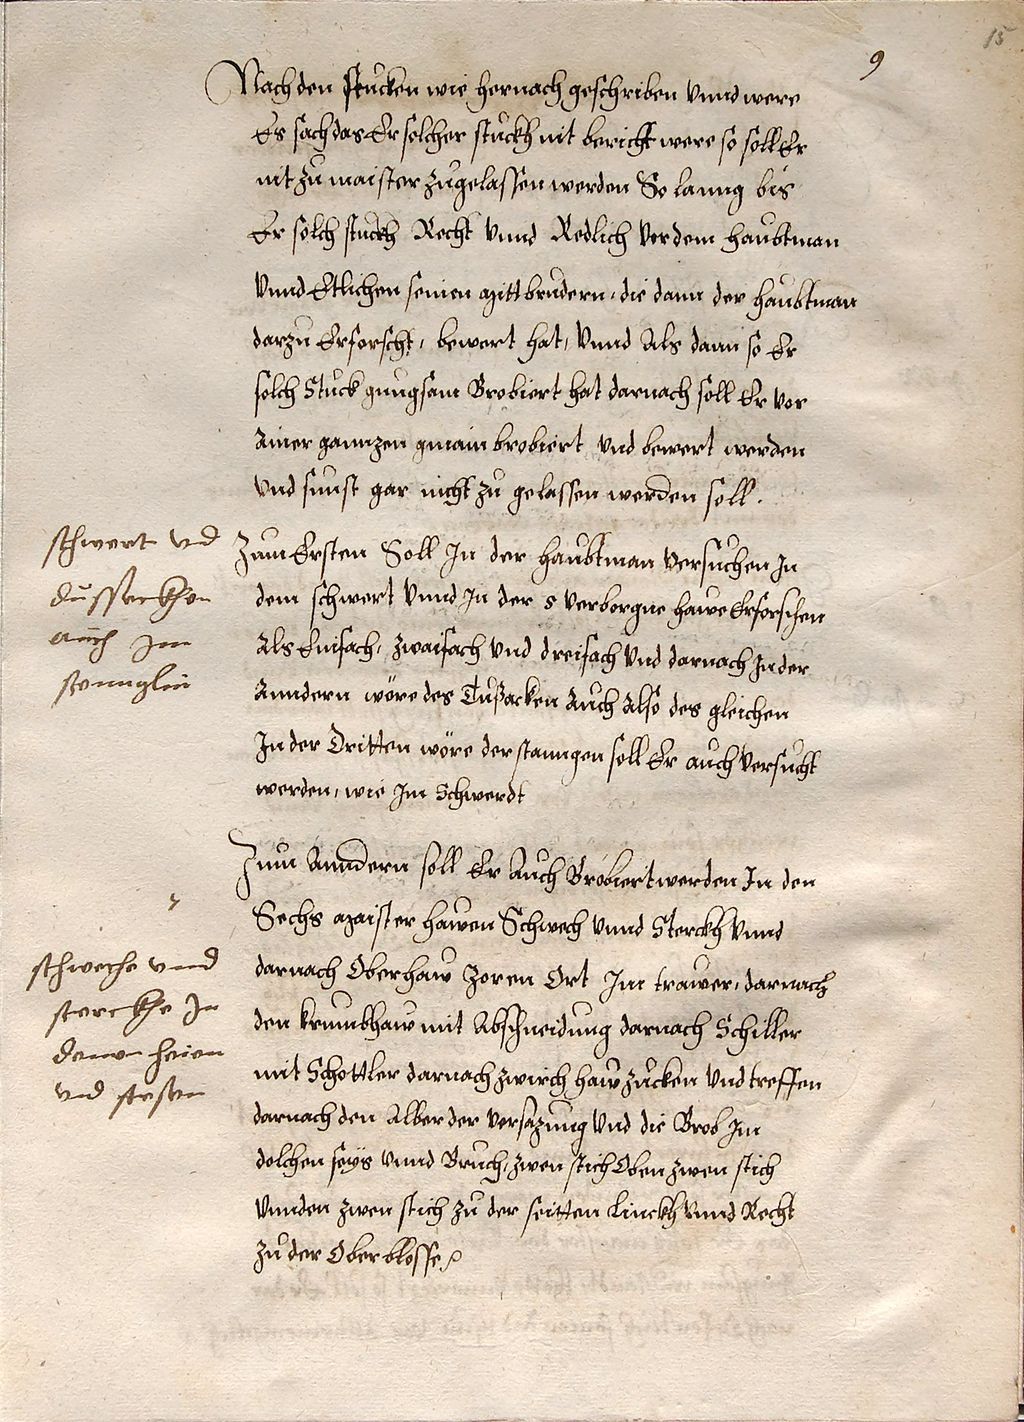 15
9
Nach den stucken wie hernach geschriben vnnd were
Es sach das Er solcher stuckh nit bericht were so soll Er
nit zu maister zugelassen werden So lanng bis
Er solch stuckh Recht vnnd Redlich vor dem haubtman
vnnd Etlichen seinen mittbrudern, die dann der haubtman
darzu Erforscht, bewert hat, vnnd Als dann so Er
solch Stuck gnugsam Brobiert hat darnach soll Er vor
Ainer gannzen gmain brobiert vnd bewert werden
vnd sunst gar nicht zu gelassen werden soll.
schwert vnd
dussackhen
auch im
stennglin
Zum Ersten Soll In der haubtman versuchen In
dem schwert vnnd In der 5 verborgne hawe Erforschen
Als Einfach, zwaifach vnd dreifach vnd darnach In der
Anndern wöre des Tußacken Auch Also des gleichen
In der Dritten wöre der stanngen soll Er auch versucht
werden, wie Im Schwerdt
Zum Anndern soll Er Auch Brobiert werden In den
Sechs maister hawen Schwech vnnd Sterckh vnnd
darnach Oberhaw zoren Ort Im trawer, darnach
den krumbhaw mit Abschneidung darnach Schiller
mit Schottler darnach zwirch haw zucken vnd treffen
darnach den Alber der versazung vnd die Brob Im
dolchen seys vnnd Bruch, zwen stich Oben zwen stich
vnnden zwen stich zu der seitten Linckh vnnd Recht
zu der Ober blosse
schweche vnnd
sterckhe In
denen heien
vnd stesen